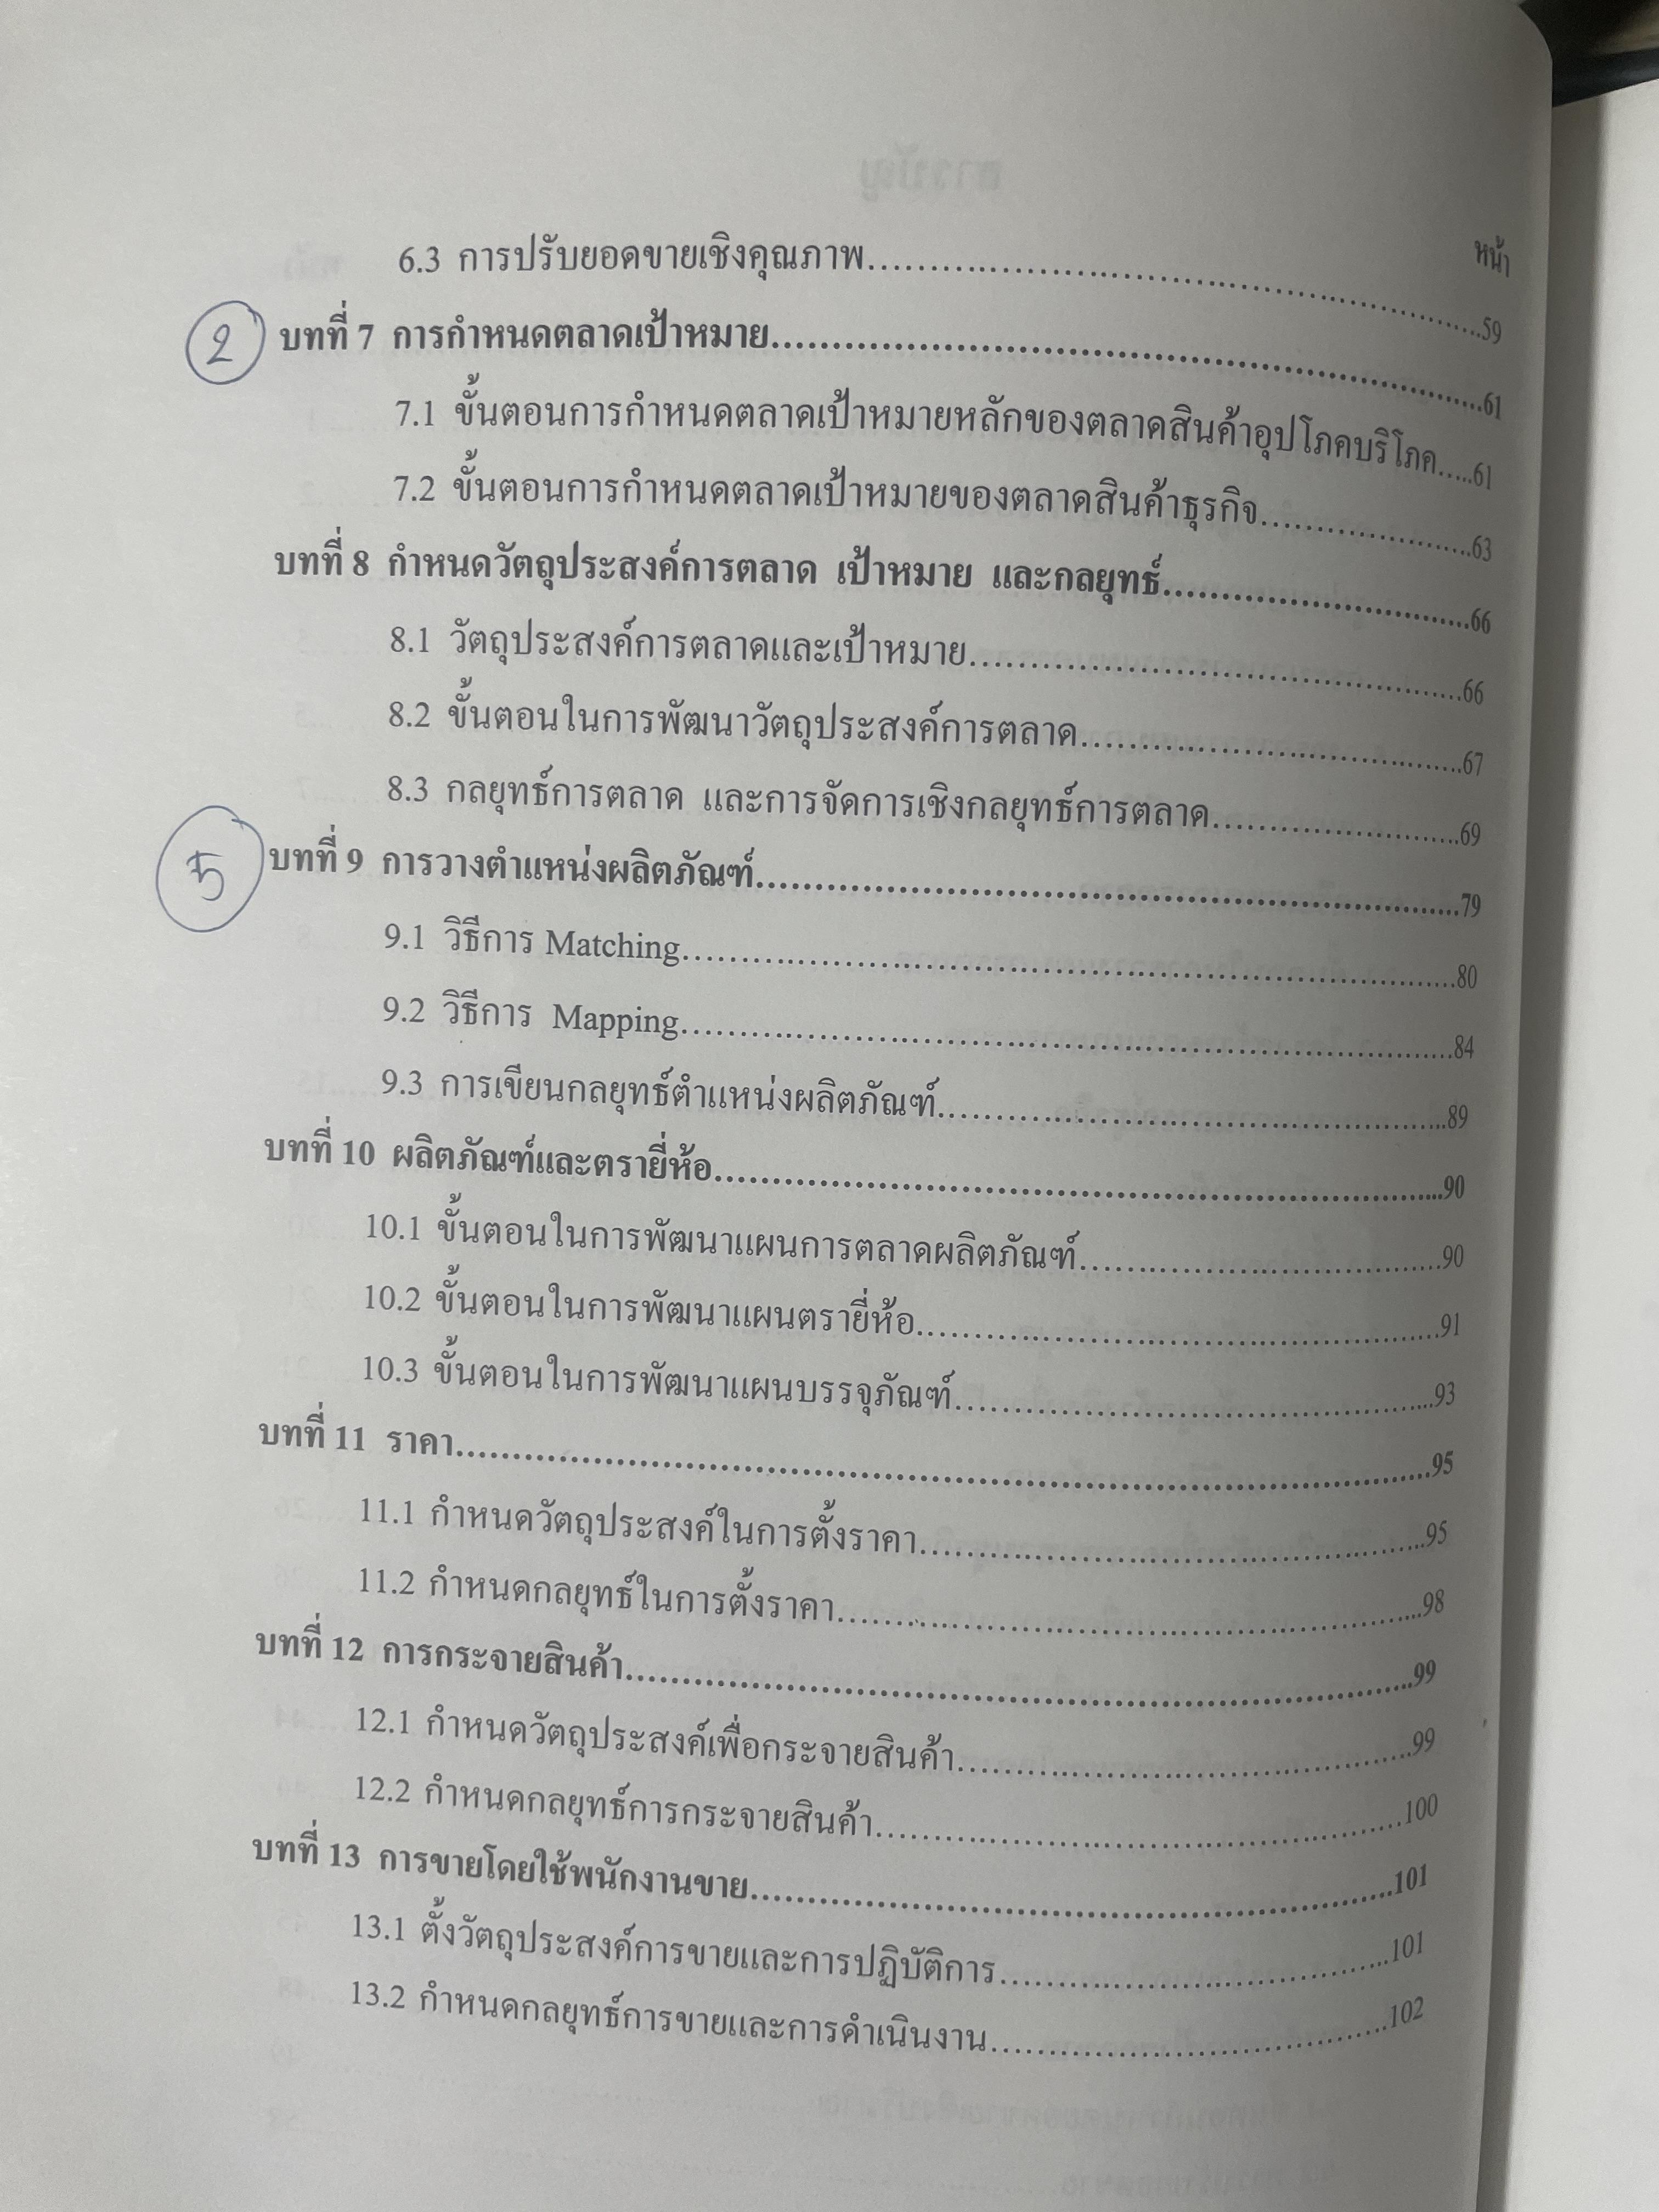 หน้า
6.3 การปรับยอดขายเชิงคุณภาพ....................................................59
2 บทที่ 7 การกำหนดตลาดเป้าหมาย....................................................61
7.1 ขั้นตอนการกำหนดตลาดเป้าหมายหลักของตลาดสินค้าอุปโภคบริโภค.....61
7.2 ขั้นตอนการกำหนดตลาดเป้าหมายของตลาดสินค้าธุรกิจ....................63
บทที่ 8 กำหนดวัตถุประสงค์การตลาด เป้าหมาย และกลยุทธ์..............................66
8.1 วัตถุประสงค์การตลาดและเป้าหมาย..............................................66
8.2 ขั้นตอนในการพัฒนาวัตถุประสงค์การตลาด....................................67
8.3 กลยุทธ์การตลาด และการจัดการเชิงกลยุทธ์การตลาด........................69
5 บทที่ 9 การวางตำแหน่งผลิตภัณฑ์....................................................79
9.1 วิธีการ Matching....................................................80
9.2 วิธีการ Mapping....................................................84
9.3 การเขียนกลยุทธ์ตำแหน่งผลิตภัณฑ์..............................................89
บทที่ 10 ผลิตภัณฑ์และตรายี่ห้อ....................................................90
10.1 ขั้นตอนในการพัฒนาแผนการตลาดผลิตภัณฑ์....................................90
10.2 ขั้นตอนในการพัฒนาแผนตรายี่ห้อ..............................................91
10.3 ขั้นตอนในการพัฒนาแผนบรรจุภัณฑ์..............................................93
บทที่ 11 ราคา....................................................95
11.1 กำหนดวัตถุประสงค์ในการตั้งราคา..............................................95
11.2 กำหนดกลยุทธ์ในการตั้งราคา....................................................98
บทที่ 12 การกระจายสินค้า....................................................99
12.1 กำหนดวัตถุประสงค์เพื่อกระจายสินค้า..............................................99
12.2 กำหนดกลยุทธ์การกระจายสินค้า....................................................100
บทที่ 13 การขายโดยใช้พนักงานขาย....................................................101
13.1 ตั้งวัตถุประสงค์การขายและการปฏิบัติการ....................................101
13.2 กำหนดกลยุทธ์การขายและการดำเนินงาน....................................102